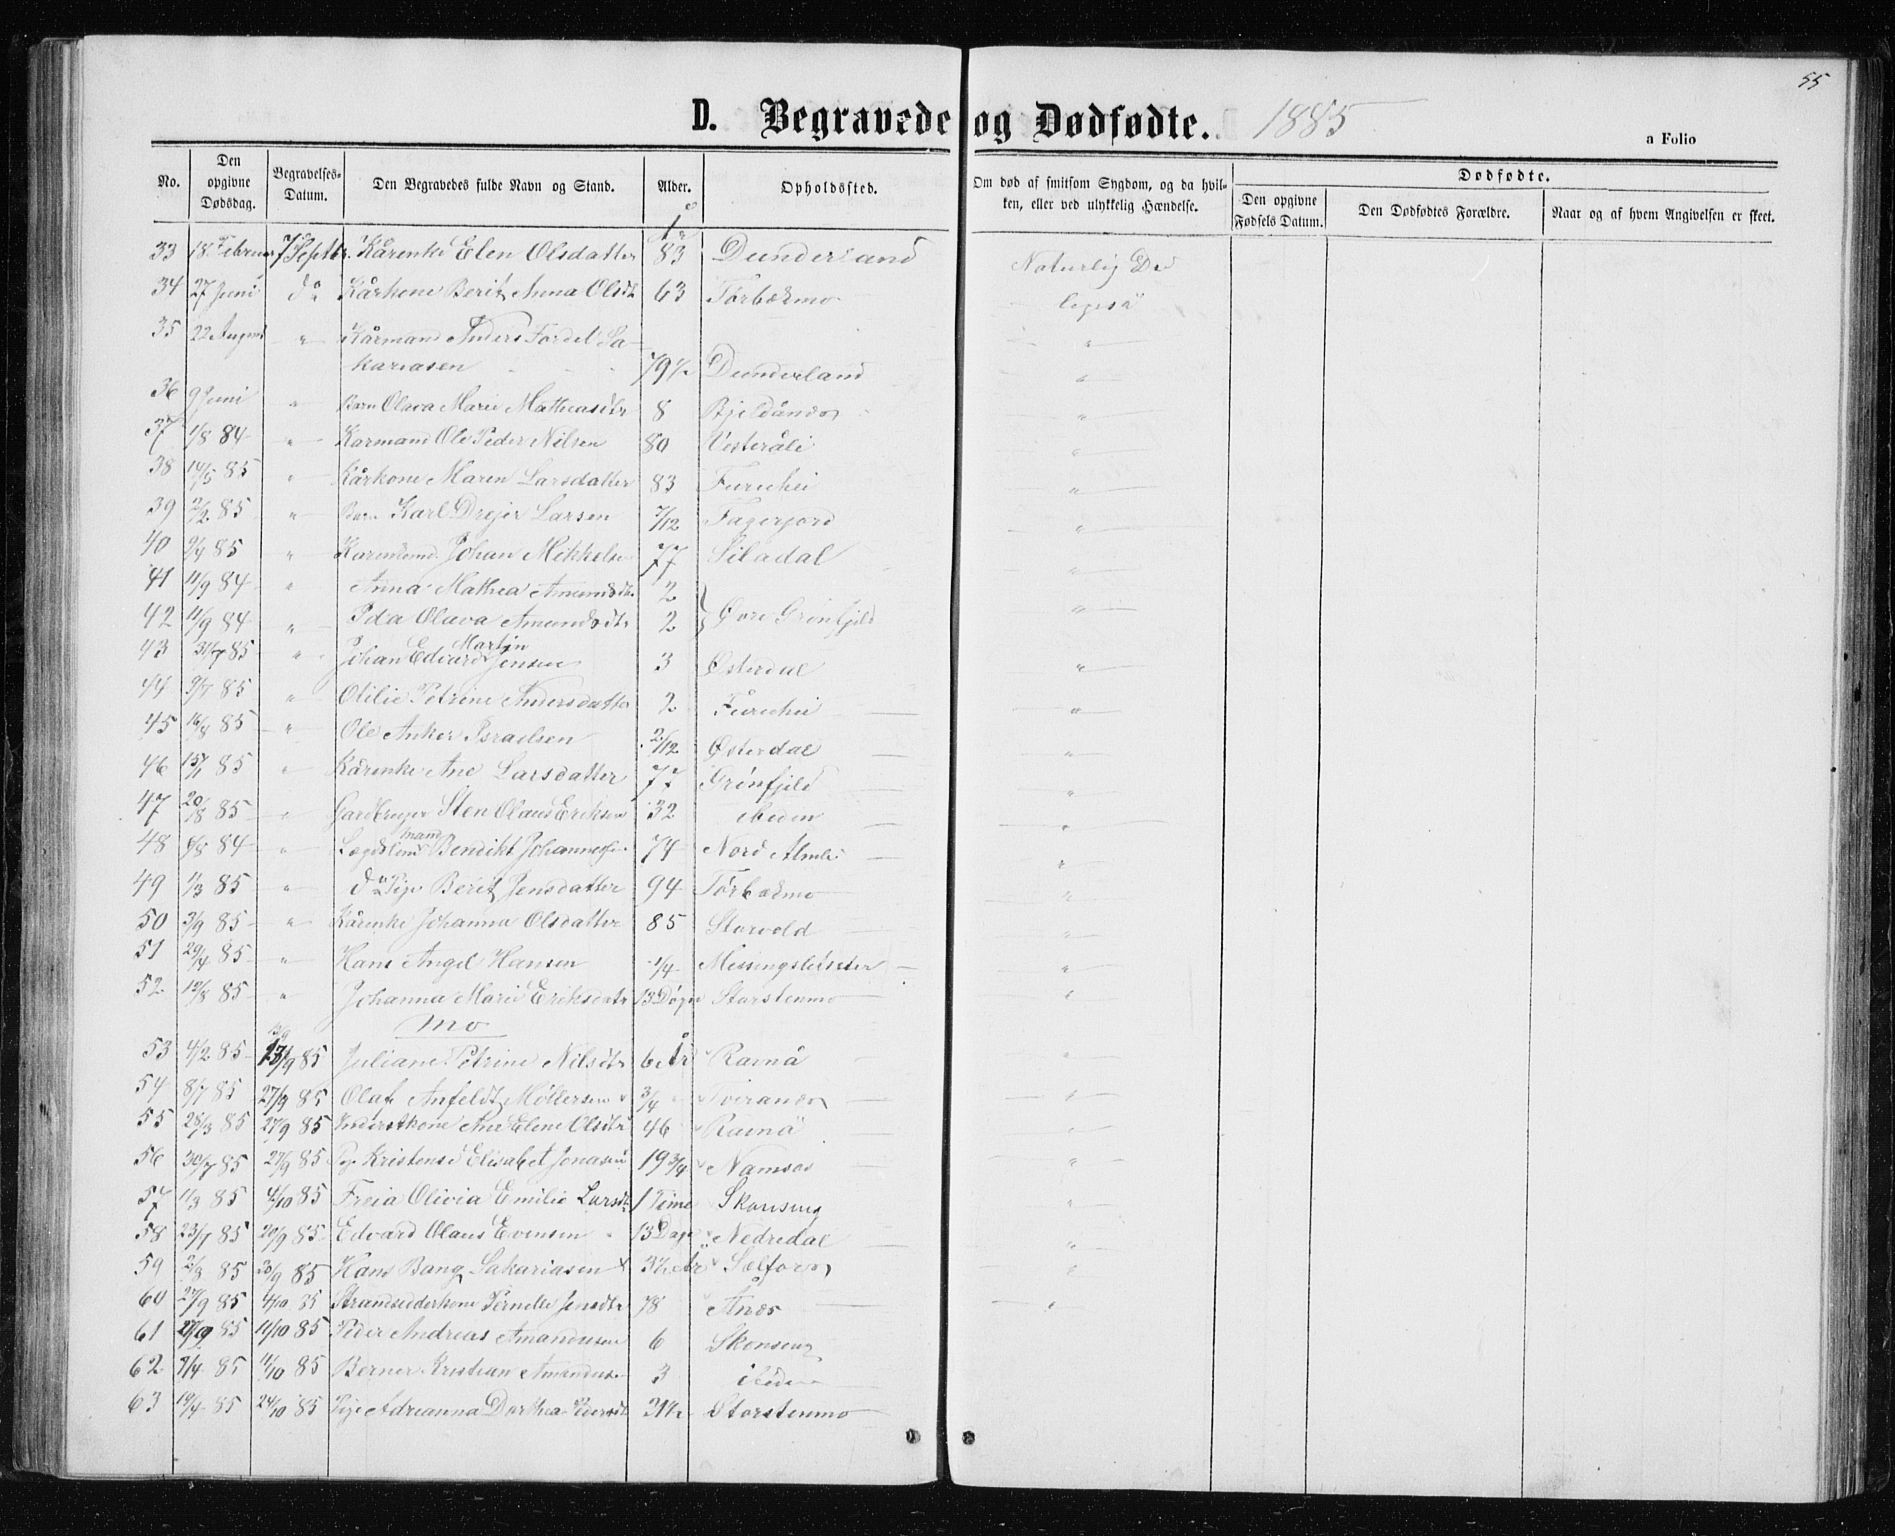 55
D. Begravede og Dødfødte. 1885
a Folio
No. Den opgivne Dødsdag. Begravelses-Datum. Den Begravedes fulde Navn og Stand. Alder. Opholdssted. Om død af smitsom Sygdom, og da hvilken, eller ved ulykkelig Hændelse. Dødfødte. Den opgivne Fødsels Datum. Den Dødfødtes Forældre. Naar og af hvem Angivelsen er skeet.
33 18 Februar 7 Septbr. Kårenke Elen Olsdatter 83 Dunderland Naturlig Død
34 27 Juni do Kårkone Berit Anna Olsdt 63 Tørbækmo ligeså
35 22 August " Kårmand Anders Fordel Sa-
kariasen 79½ Dunderland "
36 9 Juni " Barn Olava Marie Mathiasdtr 8 Bjeldånæs "
37 1/8 84 " Karmand Ole Peder Nilsen 80 Vesteråli "
38 14/5 85 " Kårkone Maren Larsdatter 83 Furuhei "
39 2/2 85 " Barn Karl Drejer Larsen 7/12 Fagerjord "
40 9/4 85 " Karmand Johan Mikkelsen 77 Stladal "
41 11/9 84 " Anna Mathea Amundsdtr 2
42 11/9 84 " Ida Olava Amundsdtr 2 Øvre Grønfjeld "
43 31/7 85 " Johan Edvard Martin Jensen 3 Østerdal "
44 9/7 85 " Otilie Petrine Andersdatter 2 Furuhei "
45 16/8 85 " Ole Anker Israelsen 2/12 Østerdal
46 15/1 85 " Kårenke Ane Larsdatter 77 Grønfjeld "
47 20/8 85 " Gardbruger Sten Olaus Eriksen 32 ibidem "
48 6/8 84 " Lægdslemd mand Bendikt Johannesen 74 Nord Almli "
49 1/3 85 " do Pige Berit Jensdatter 94 Tørbækmo "
50 3/9 85 " Kårenke Johanna Olsdatter 85 Storvold "
51 29/4 85 " Hans Angel Hansen ¼ Messingsletter "
52 12/8 85 " Johanna Marie Eriksdatr 13 Døgn Storstenmo "
Mo
53 4/2 85 13/9 85 Juliane Petrine Nilsdtr 6 År Ravnå "
54 8/7 85 27/9 85 Olaf Anfeldt Møllersen 3/4 Tveranæs "
55 28/3 85 27/9 85 Inderstkone Ane Elene Olsdtr 46 Ravnå "
56 30/7 85 27/9 85 Pige Kristense Elisabet Jonassen 19 3/4 Namsos "
57 1/3 85 4/10 85 Freia Olivia Emilie Larsdt 1 Time Skonseng "
58 23/7 85 20/9 85 Edvard Olaus Evensen 13 Dage Nedredal "
59 2/8 85 20/9 85 Hans Bang Sakariasen 3½ År Selfors "
60 27/9 85 4/10 85 Strandsidderkone Pernelle Jensdtr 78 Ånæs "
61 27/9 85 11/10 85 Peder Andreas Amandusen 6 Skonseng
62 7/4 85 11/10 85 Berner Kristian Amandusen 3 ibidem
63 19/4 85 24/10 85 Pige Adrianna Dorthea Pedersdt 31½ Storstenmo